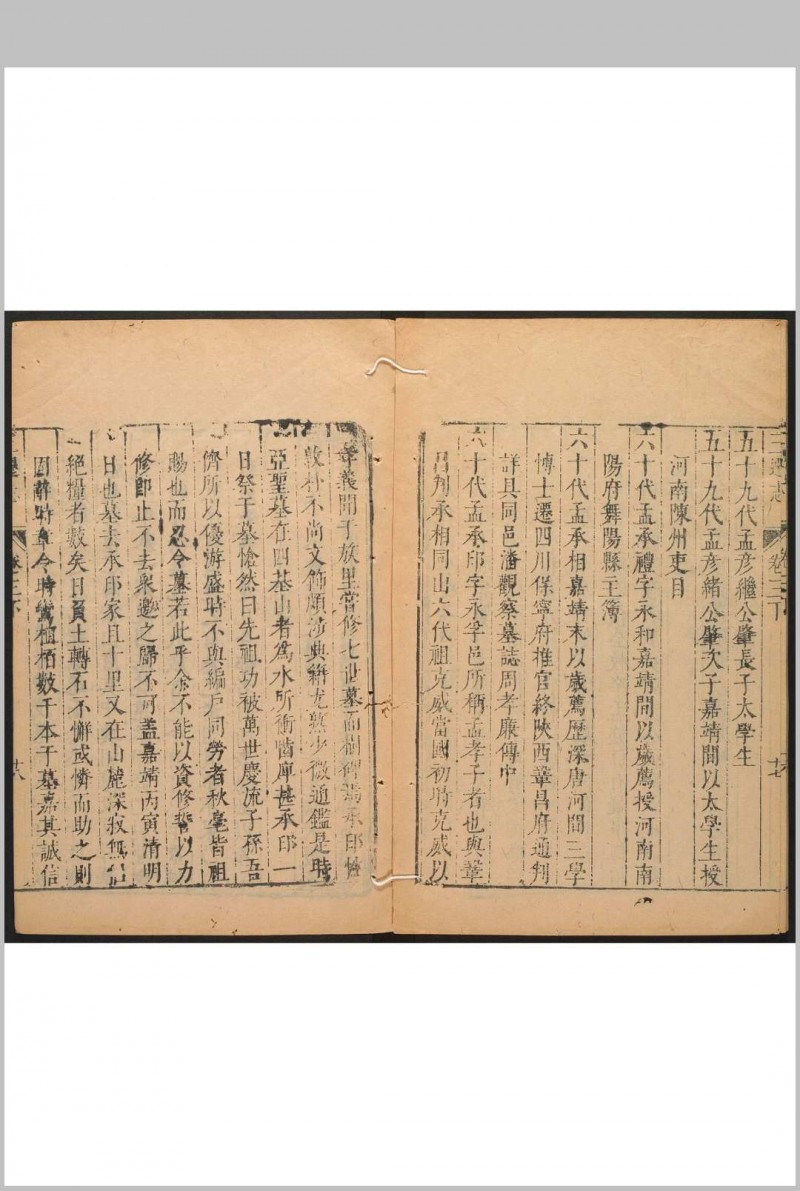 三遷志
卷三下
五十九代孟彥繼公肇長子太學生
五十九代孟彥緒公肇次子嘉靖間以太學生授
河南陳州吏目
六十代孟承禮字永和嘉靖間以歲薦授河南南
陽府舞陽縣主簿
六十代孟承相嘉靖末以歲薦歷深唐河間三學
博士遷四川保寧府推官終陝西鞏昌府通判
詳具同邑潘觀察墓誌周孝廉傳中
六十代孟承印字永孚邑所稱孟孝子者也與鞏
昌判承相同出六代祖克威當國初時克威以
孝義聞于族里嘗修七世墓而樹碑焉承印性
敦朴不尚文飾頗涉典籍尤熟少微通鑑是時
亞聖墓在四基山者為水所衝齧庳甚承印一
日祭于墓愴然曰先祖功被萬世慶流子孫吾
儕所以優游盛時不與編戶同勞者秋毫皆祖
賜也而忍令墓若此乎余不能以資修誓以力
修即止不去衆邀之歸不可蓋嘉靖丙寅清明
日也墓去承印家且十里又在山麓深寂無侶
絕糧者數矣日負土轉石不懈或憐而助之則
固辭時章令時鸞植栢數千本于墓嘉其誠信
卷三下